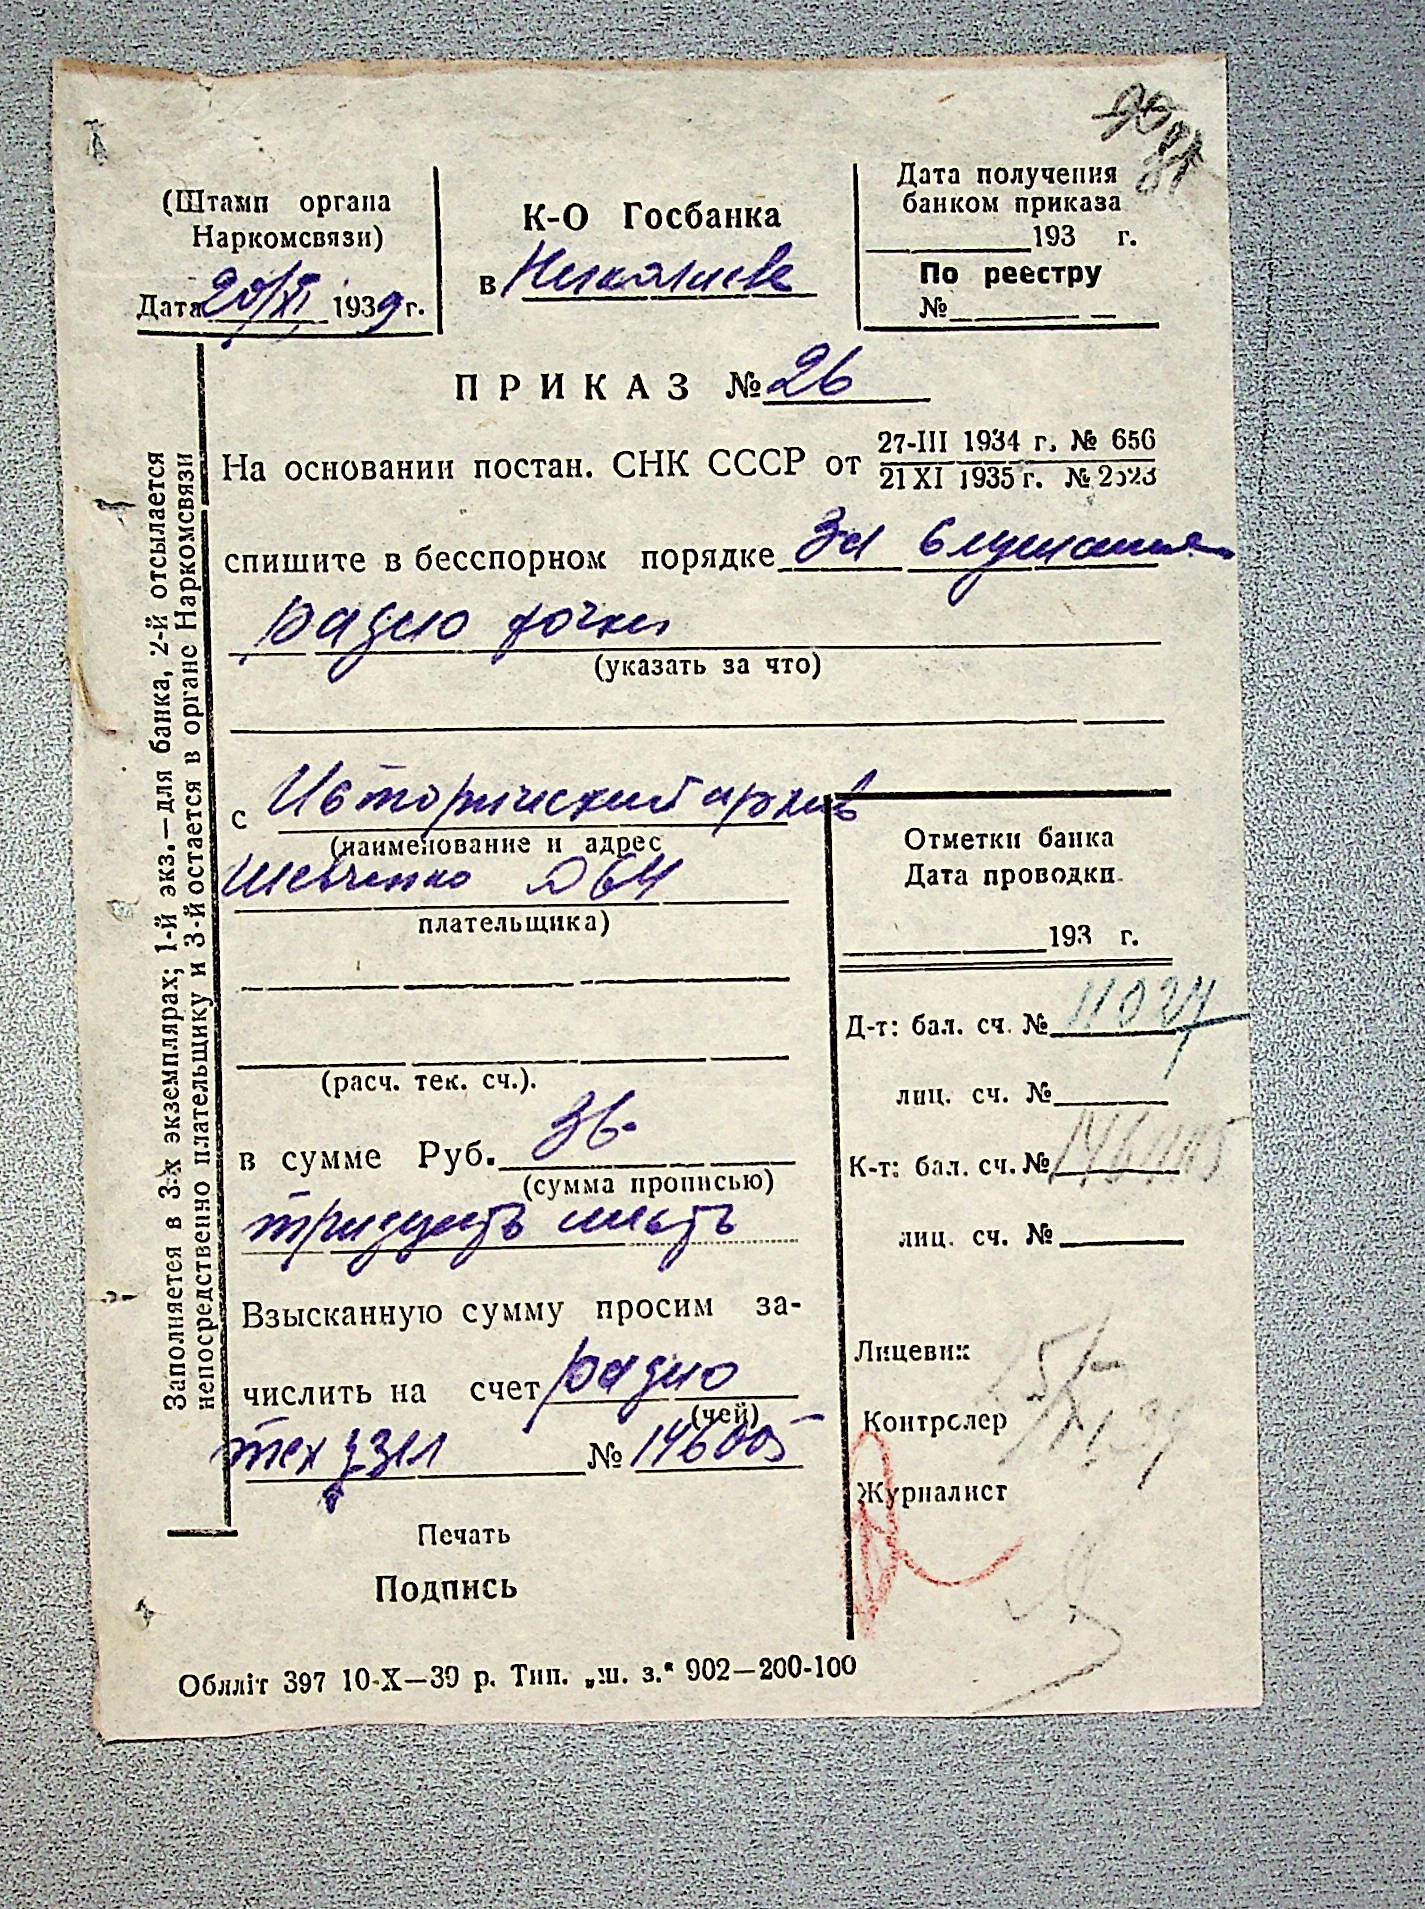 (Штамп органа
Наркомсвязи)
Дата 20/XI 1939 г.
К-О Госбанка
в Николаеве
Дата получения
банком приказа
193 г.
По реестру
№
ПРИКАЗ № 26
На основании постан. СНК СССР от 27-III 1934 г. № 656
21 XI 1935 г. № 2523
спишите в бесспорном порядке за слушание
радио точки
(указать за что)
с Исторический архив
(наименование и адрес
Шевченко 64
плательщика)
(расч. тек. сч.).
в сумме Руб. 36-
(сумма прописью)
тридцать шесть
Взысканную сумму просим за-
числить на счет радио
(чей)
тех узел № 146005
Печать
Подпись
Отметки банка
Дата проводки
193 г.
Д-т: бал. сч. №
лиц. сч. №
К-т: бал. сч. № 146005
лиц. сч. №
Лицевик
Контролер
Журналист
Заполняется в 3-х экземплярах; 1-й экз.—для банка, 2-й отсылается
непосредственно плательщику и 3-й остается в органе Наркомсвязи
Обліт 397 10-X—39 р. Тип. „ш. з.“ 902—200-100